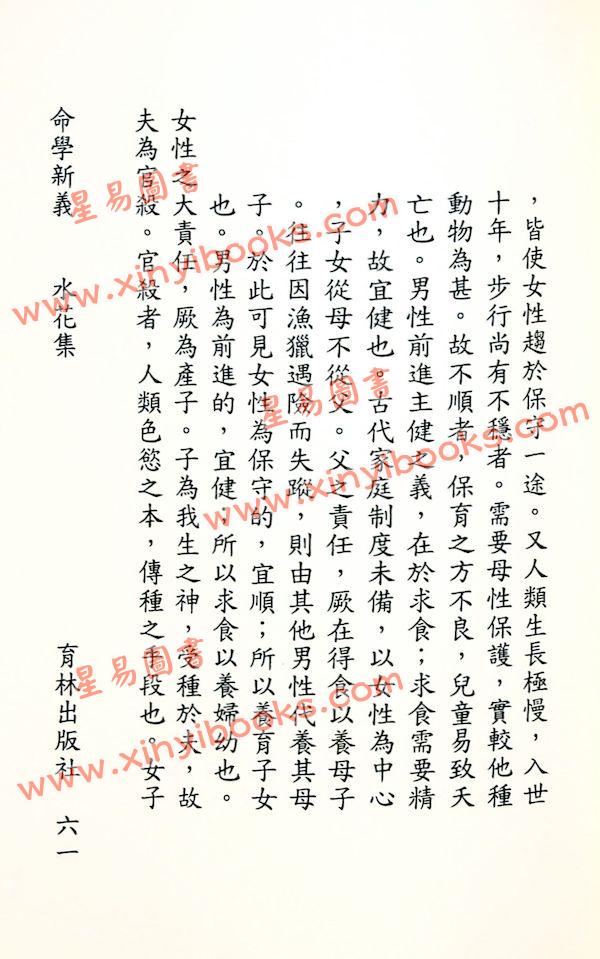 ，皆使女性趨於保守一途。又人類生長極慢，入世
十年，步行尚有不穩者。需要母性保護，實較他種
動物為甚。故不順者，保育之方不良，兒童易致夭
亡也。男性前進主健之義，在於求食；求食需要精
力，故宜健也。古代家庭制度未備，以女性為中心
，子女從母不從父。父之責任，厥在得食以養母子
。往往因漁獵遇險而失蹤，則由其他男性代養其母
子。於此可見女性為保守的，宜順；所以養育子女
也。男性為前進的，宜健；所以求食以養婦幼也。
女性之大責任，厥為產子。子為我生之神，受種於夫，故
夫為官殺。官殺者，人類色慾之本，傳種之手段也。女子
命學新義　水花集　育林出版社　六一
星易圖書
www.xinyibooks.com
星易圖書
www.xinyibooks.com
星易圖書
www.xinyibooks.com